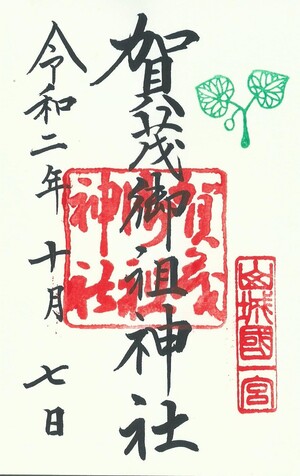 山城國一宮
賀茂御祖神社
賀茂
御祖
神社
令和二年十月七日